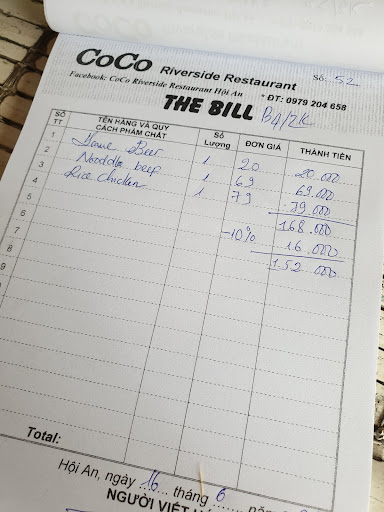 CoCo Riverside Restaurant
Số: 52
Facebook: CoCo Riverside Restaurant Hội An * ĐT: 0979 204 658
THE BILL
SỐ TT TÊN HÀNG VÀ QUY CÁCH PHẨM CHẤT Số Lượng ĐƠN GIÁ THÀNH TIỀN
1 Beer 1 20 20.000
2 beep 1 69 69.000
3 Rice chicken 1 79 79.000
4 168.000
5 -10% 16.000
6 152 000
7
8
9
Total:
Hội An, ngày 16 tháng 6 năm
NGƯỜI VIẾT